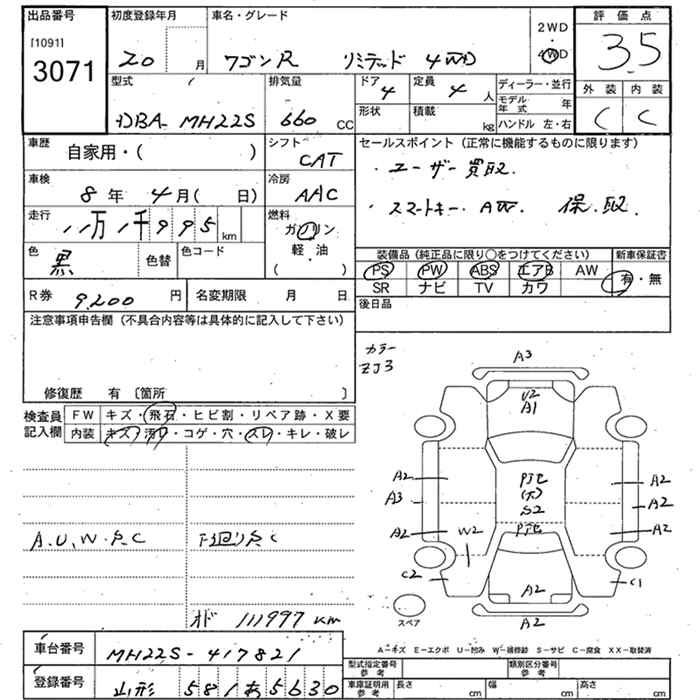 出品番号
[1091]
3071
初度登録年月
20 月
車名・グレード
ワゴンR リミテッド 4WD
2WD
4WD
評価点
3.5
型式
DBA-MH22S
排気量
660 CC
ドア
4
定員
4 人
形状
積載 kg
ディーラー・並行
モデル年式 年
ハンドル 左・右
外装
C
内装
C
車歴
自家用・( )
シフト
CAT
セールスポイント(正常に機能するものに限ります)
・ユーザー買取.
・スマートキー. AW. 保.取.
車検
8年 4月( 日)
冷房
AAC
走行
11万1千995 km
燃料
ガソリン
軽・油
( )
色
黒
色替
色コード
装備品(純正品に限り○をつけてください)
PS PW ABS エアB AW
SR ナビ TV カワ
新車保証書
有・無
R券 9,200 円
名変期限 月 日
後日品
注意事項申告欄(不具合内容等は具体的に記入して下さい)
修復歴 有〔箇所 〕
検査員記入欄
FW キズ・飛石・ヒビ割・リペア跡・X要
内装 キズ・汚れ・コゲ・穴・スレ・キレ・破レ
A.U.W.P.C
下廻りP.C
オド 111997 km
カラー
ZJ3
A3
U2
A1
A2
A3
A2
W2
C2
A2
A2
A2
C1
S2
A2
A2
スペア
A-キズ E-エクボ U-凹み W-補修跡 S-サビ C-腐食 XX-取替済
車台番号
MH22S-417821
登録番号
山形 581あ5630
型式指定番号 参考
類別区分番号 参考
車庫証明用 参考
長さ cm
幅 cm
高さ cm